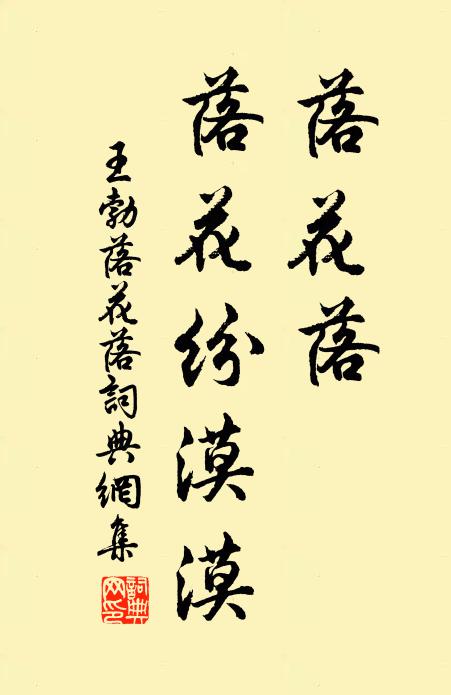 落花落
落花紛漠漠
王勃落花落詞典網集
詞典網印